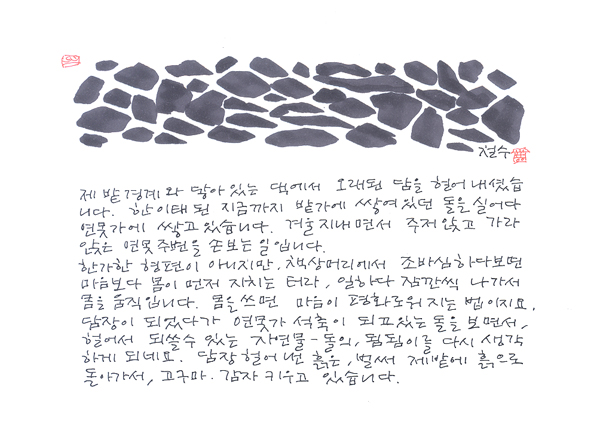 철수
제 밭 경계와 닿아있는 댁에서 오래된 담을 헐어 내셨습
니다. 한 이태 된 지금까지 밭가에 쌓여 있던 돌을 실어다
연못가에 쌓고 있습니다. 겨울 지내면서 주저앉고 가라
앉은 연못 주변을 손보는 일입니다.
한가한 형편이 아니지만, 책상머리에서 조바심하다보면
마음보다 몸이 먼저 지치는 터라, 일하다 잠깐씩 나가서
몸을 움직입니다. 몸을 쓰면 마음이 평화로워지는 법이지요.
담장이 되었다가 연못가 석축이 되고있는 돌을 보면서,
헐어서 되쓸수 있는 자연물-돌의, 됨됨이를 다시 생각
하게 되네요. 담장 헐어낸 흙은, 벌써 제밭에 흙으로
돌아가서, 고구마·감자 키우고 있습니다.